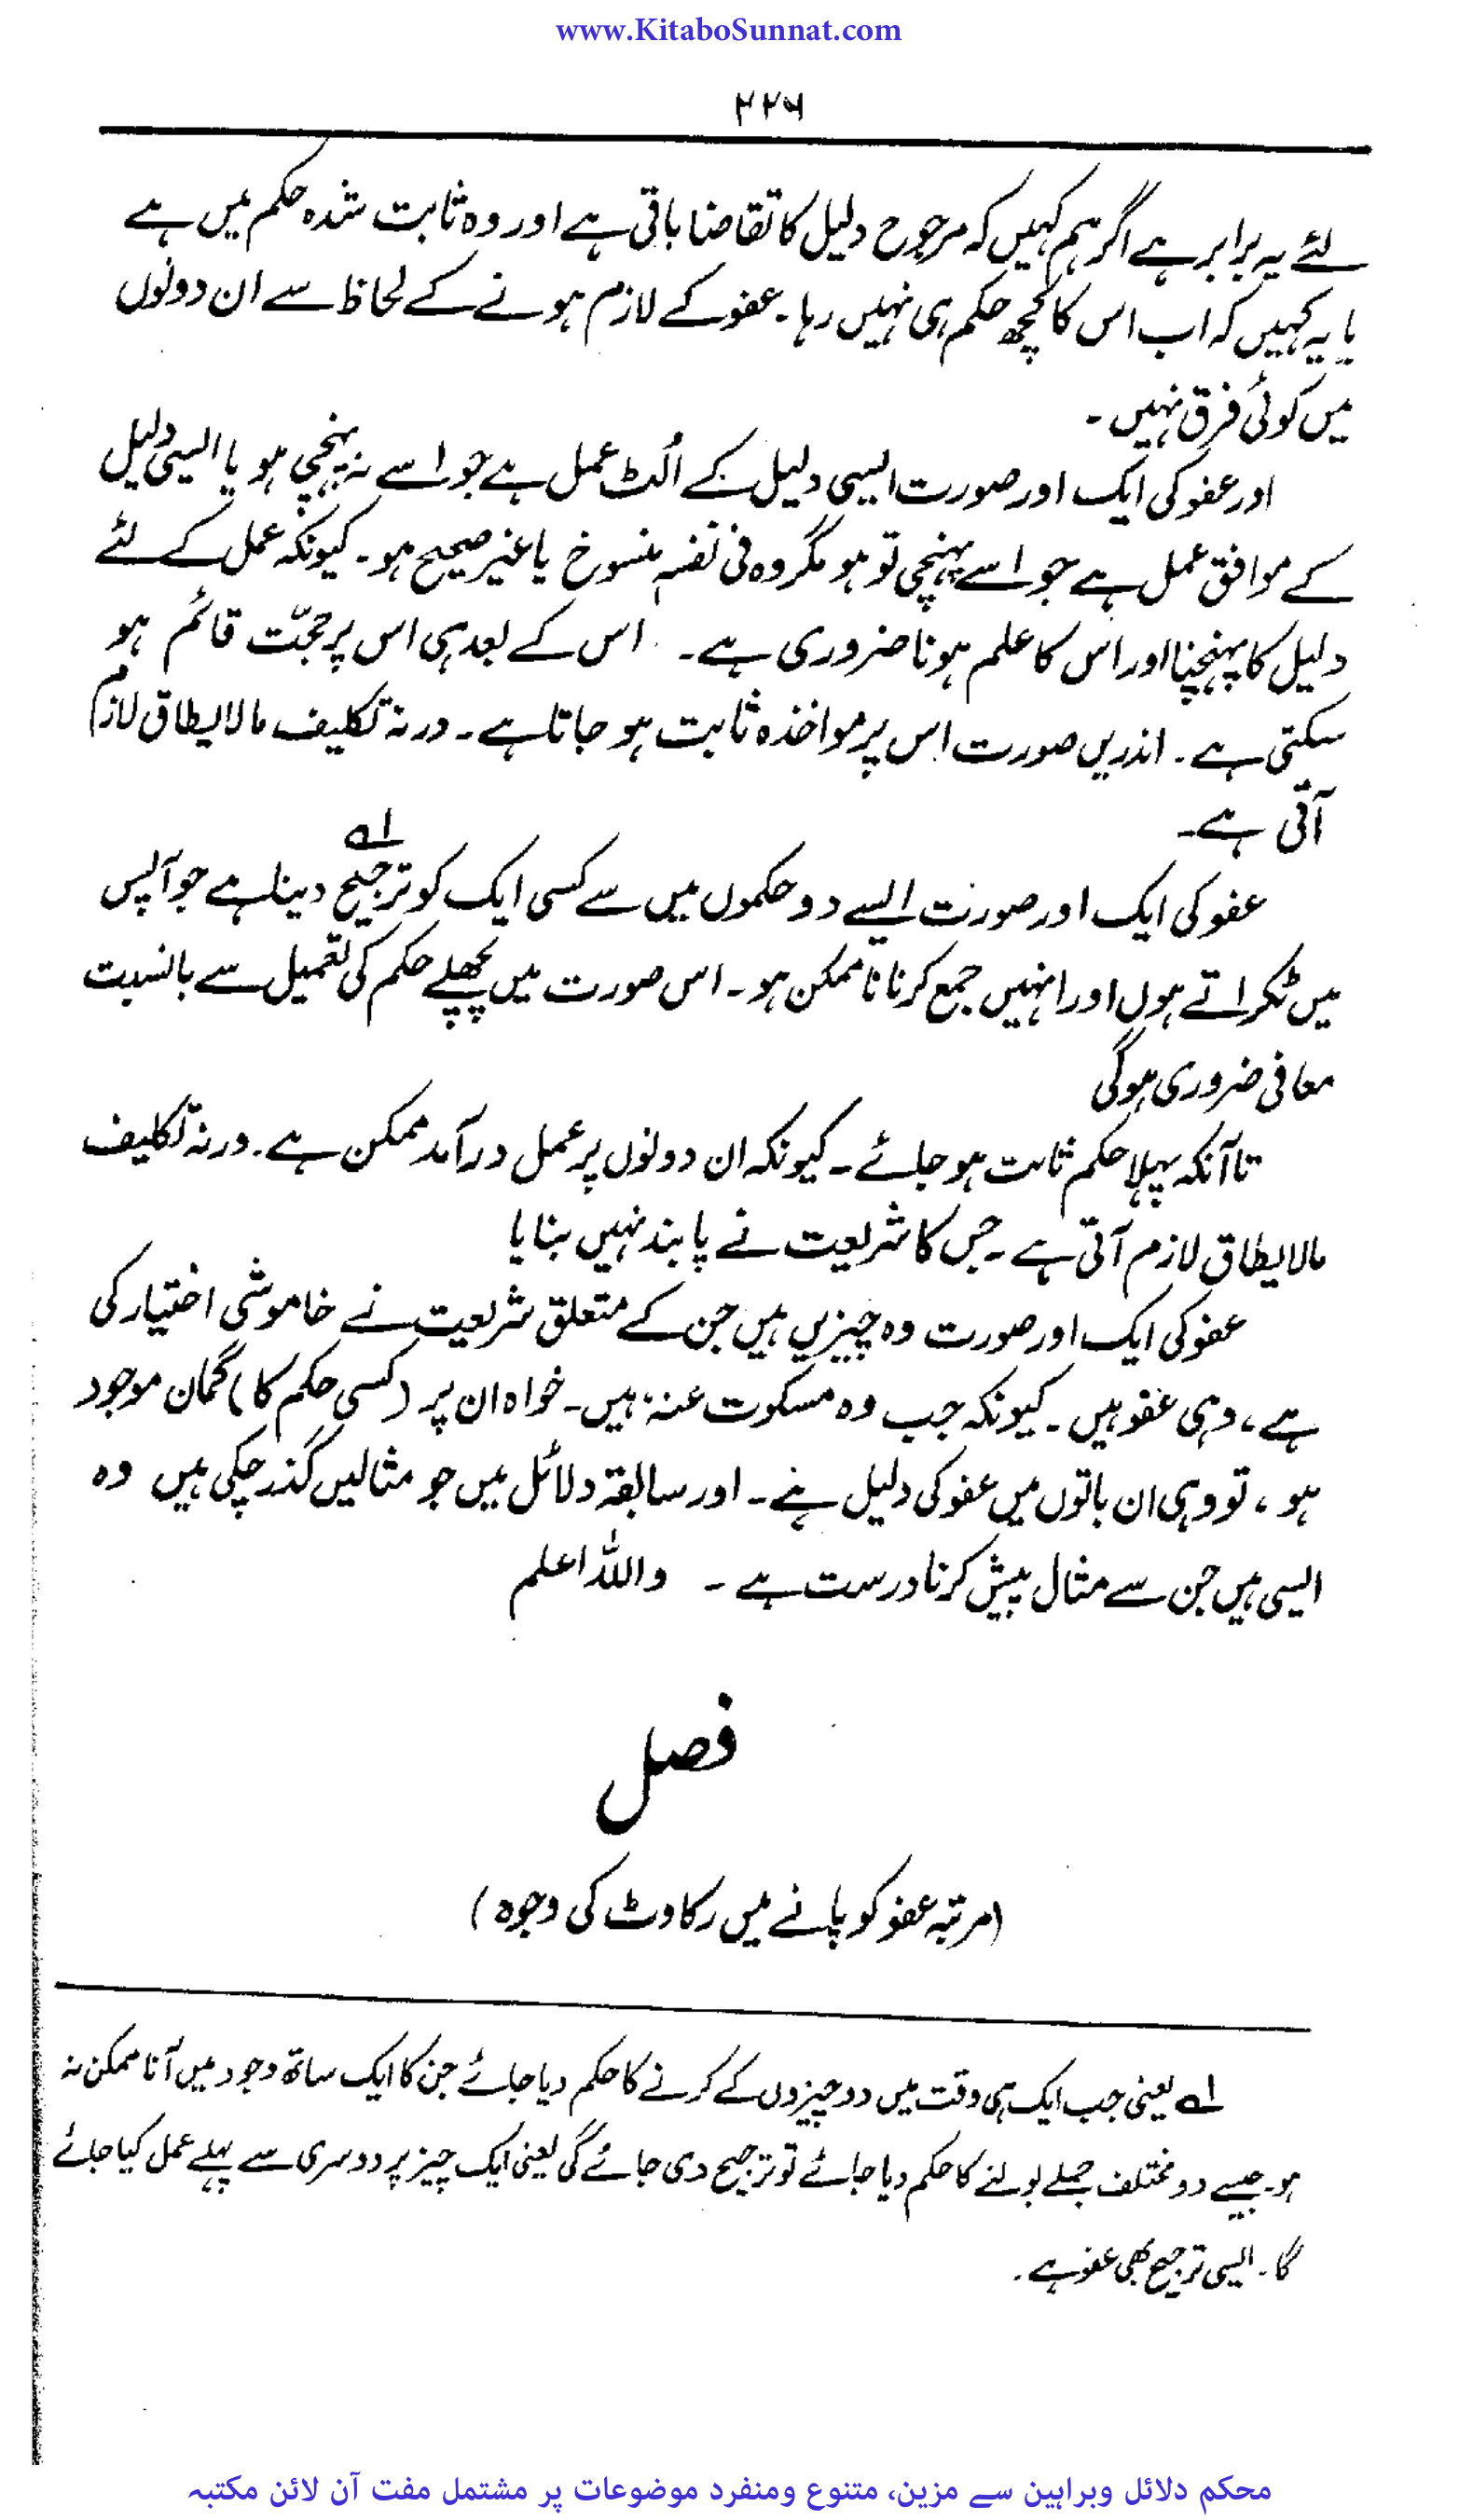 www.KitaboSunnat.com
۲۲۶
لئے یہ برابر ہے اگر ہم کہیں کہ مرجوح دلیل کا تقاضا باقی ہے اور وہ ثابت شدہ حکم میں ہے
یا یہ کہیں کہ اب اس کا کچھ حکم ہی نہیں رہا۔ عفو کے لازم ہونے کے لحاظ سے ان دونوں
میں کوئی فرق نہیں۔
اور عفو کی ایک اور صورت ایسی دلیل کے اُلٹ عمل ہے جو اسے نہ پہنچی ہو یا ایسی دلیل
کے موافق عمل ہے جو اسے پہنچی تو ہو مگر وہ فی نفسہٖ منسوخ یا غیر صحیح ہو۔ کیونکہ عمل کے لئے
دلیل کا پہنچنا اور اس کا علم ہونا ضروری ہے۔ اس کے بعد ہی اس پر حجّت قائم ہو
سکتی ہے۔ اندریں صورت اس پر مواخذہ ثابت ہو جاتا ہے۔ ورنہ تکلیف مالا یطاق لازم
آتی ہے۔
عفو کی ایک اور صورت ایسے دو حکموں میں سے کسی ایک کو ترجیح ؎۱ دینا ہے جو آپس
میں ٹکراتے ہوں اور انہیں جمع کرنا ناممکن ہو۔ اس صورت میں پچھلے حکم کی تعمیل سے بالنسبت
معافی ضروری ہوگی
تاآنکہ پہلا حکم ثابت ہو جائے۔ کیونکہ ان دونوں پر عمل درآمد ممکن ہے۔ ورنہ تکلیف
مالا یطاق لازم آتی ہے۔ جس کا شریعت نے پابند نہیں بنایا
عفو کی ایک اور صورت وہ چیزیں ہیں جن کے متعلق شریعت نے خاموشی اختیار کی
ہے، وہی عفو ہیں۔ کیونکہ جب وہ مسکوت عنہ ہیں۔ خواہ ان پر (کسی حکم کا) گمان موجود
ہو، تو وہی ان باتوں میں عفو کی دلیل ہے۔ اور سابقہ دلائل میں جو مثالیں گذر چکی ہیں وہ
ایسی ہیں جن سے مثال پیش کرنا درست ہے۔ واللہ اعلم
فصل
(مرتبہ عفو کو پانے میں رکاوٹ کی وجوہ)
؎۱ یعنی جب ایک ہی وقت میں دو چیزوں کے کرنے کا حکم دیا جائے جن کا ایک ساتھ وجود میں آنا ممکن نہ
ہو۔ جیسے دو مختلف جملے بولنے کا حکم دیا جائے تو ترجیح دی جائے گی یعنی ایک چیز پر دوسری سے پہلے عمل کیا جائے
گا۔ ایسی ترجیح بھی عفو ہے۔
محکم دلائل وبراہین سے مزین، متنوع ومنفرد موضوعات پر مشتمل مفت آن لائن مکتبہ